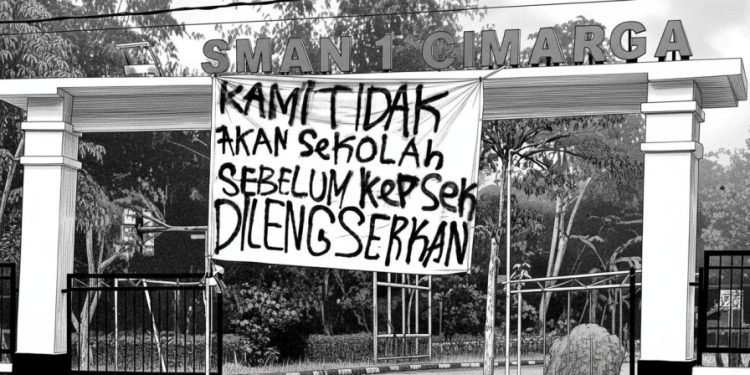 SMAN 1 CIMARGA
KAMI TIDAK
AKAN SEKOLAH
SEBELUM KEPSEK
DILENGSERKAN